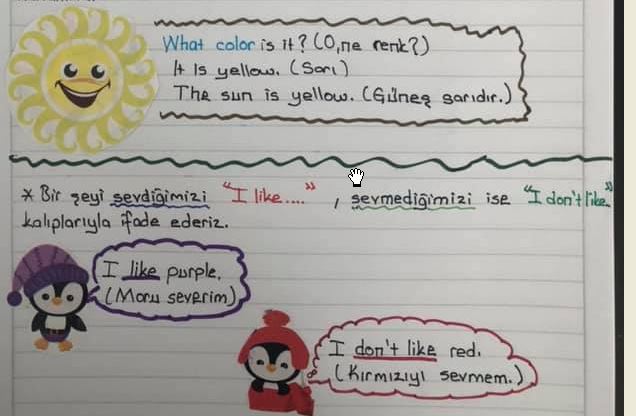 What color is it? (O, ne renk?)
It is yellow. (Sarı)
The sun is yellow. (Güneş sarıdır.)
* Bir şeyi sevdiğimizi "I like....", sevmediğimizi ise "I don't like"
kalıplarıyla ifade ederiz.
I like purple.
(Moru severim)
I don't like red.
(Kırmızıyı sevmem.)